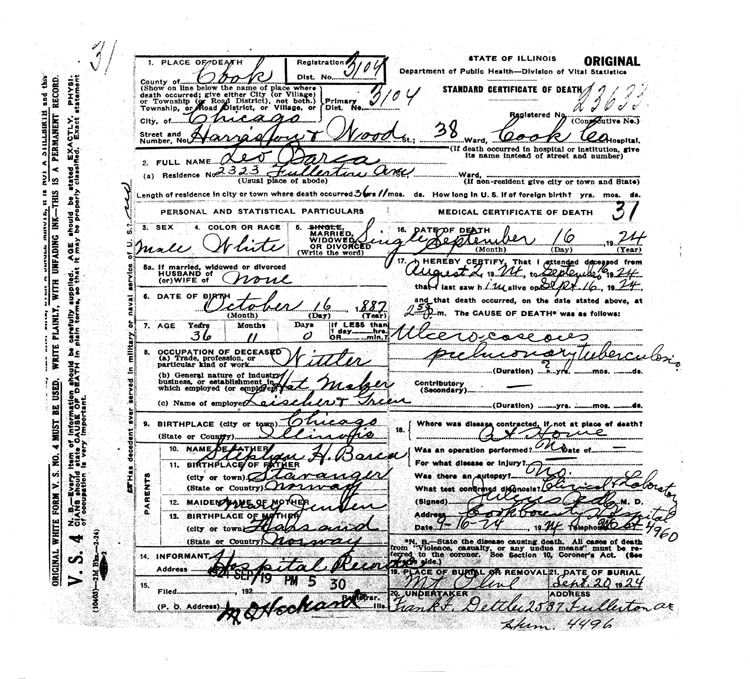 31
STATE OF ILLINOIS ORIGINAL
Department of Public Health—Division of Vital Statistics
STANDARD CERTIFICATE OF DEATH
Registered No. 23633
(Consecutive No.)
1. PLACE OF DEATH Registration Dist. No. 3104
County of Cook
(Show on line below the name of place where
death occurred; give either City (or Village)
or Township (or Road District), not both.) Primary
Township, or Road District, or Village, or Dist. No. 3104
City, of Chicago
Street and
Number, No. Harrison & Wood St.; 38 Ward, Cook Co Hospital,
(If death occurred in hospital or institution, give
its name instead of street and number)
2. FULL NAME Leo Barca
(a) Residence No. 2323 Fullerton Ave Ward,
(Usual place of abode) (If non-resident give city or town and State)
Length of residence in city or town where death occurred 36 yrs 11 mos. ds. How long in U. S. if of foreign birth? yrs. mos. ds.
PERSONAL AND STATISTICAL PARTICULARS
3. SEX 4. COLOR OR RACE 5. SINGLE,
MARRIED,
WIDOWED
OR DIVORCED
(Write the word)
Male White Single
5a. If married, widowed or divorced
HUSBAND of
(or) WIFE of None
6. DATE OF BIRTH October 16 1887
(Month) (Day) (Year)
7. AGE Years Months Days If LESS than
1 day hrs.
OR min.?
36 11 0
8. OCCUPATION OF DECEASED
(a) Trade, profession, or
particular kind of work
(b) General nature of industry,
business, or establishment in
which employed (or employer) Hat Maker
(c) Name of employer Green
9. BIRTHPLACE (city or town) Chicago
(State or County) Illinois
PARENTS
10. NAME OF FATHER Stephen H. Barca
11. BIRTHPLACE OF FATHER
(city or town) Stavanger
(State or Country) Norway
12. MAIDEN NAME OF MOTHER Jensen
13. BIRTHPLACE OF MOTHER
(city or town)
(State or Country) Norway
14. INFORMANT Hospital Records
Address
1924 SEP 19 PM 5 30
15.
Filed , 192
Registrar.
(P. O. Address) Ills.
MEDICAL CERTIFICATE OF DEATH 31
16. DATE OF DEATH
September 16 , 1924
(Month) (Day) (Year)
17. I HEREBY CERTIFY, That I attended deceased from
August 2, 1924, to September 16 1924
that I last saw him alive on Sept. 16, 1924
and that death occurred, on the date stated above, at
m. The CAUSE OF DEATH* was as follows:
Ulcero-caseous
pulmonary tuberculosis
(Duration) ? yrs. mos. ds.
Contributory —
(Secondary)
(Duration) yrs. mos. ds.
18. Where was disease contracted, if not at place of death?
At Home
Was an operation performed? No Date of
For what disease or injury?
Was there an autopsy? No.
What test confirmed diagnosis? Clinical & Laboratory
(Signed) M. D.
Address Cook County Hospital
Date 9-16-24 1924 Telephone 4960
*N. B.—State the disease causing death. All cases of death
from "Violence, casualty, or any undue means" must be re-
ferred to the coroner. See Section 10, Coroner's Act. (See
side.)
19. PLACE OF BURIAL OR REMOVAL 21. DATE OF BURIAL
Mt Olive Sept. 20, 1924
20. UNDERTAKER ADDRESS
Frank F. Dettler 2537 Fullerton av
4496
ORIGINAL WHITE FORM V. S. NO. 4 MUST BE USED. WRITE PLAINLY, WITH UNFADING INK—THIS IS A PERMANENT RECORD.
V. S. 4
N. B.—Every item of information should be carefully supplied. AGE should be stated EXACTLY. PHYSI-
CIANS should state CAUSE OF DEATH in plain terms, so that it may be properly classified. Exact statement
of occupation is very important.
Has decedent ever served in military or naval service of U. S.? no